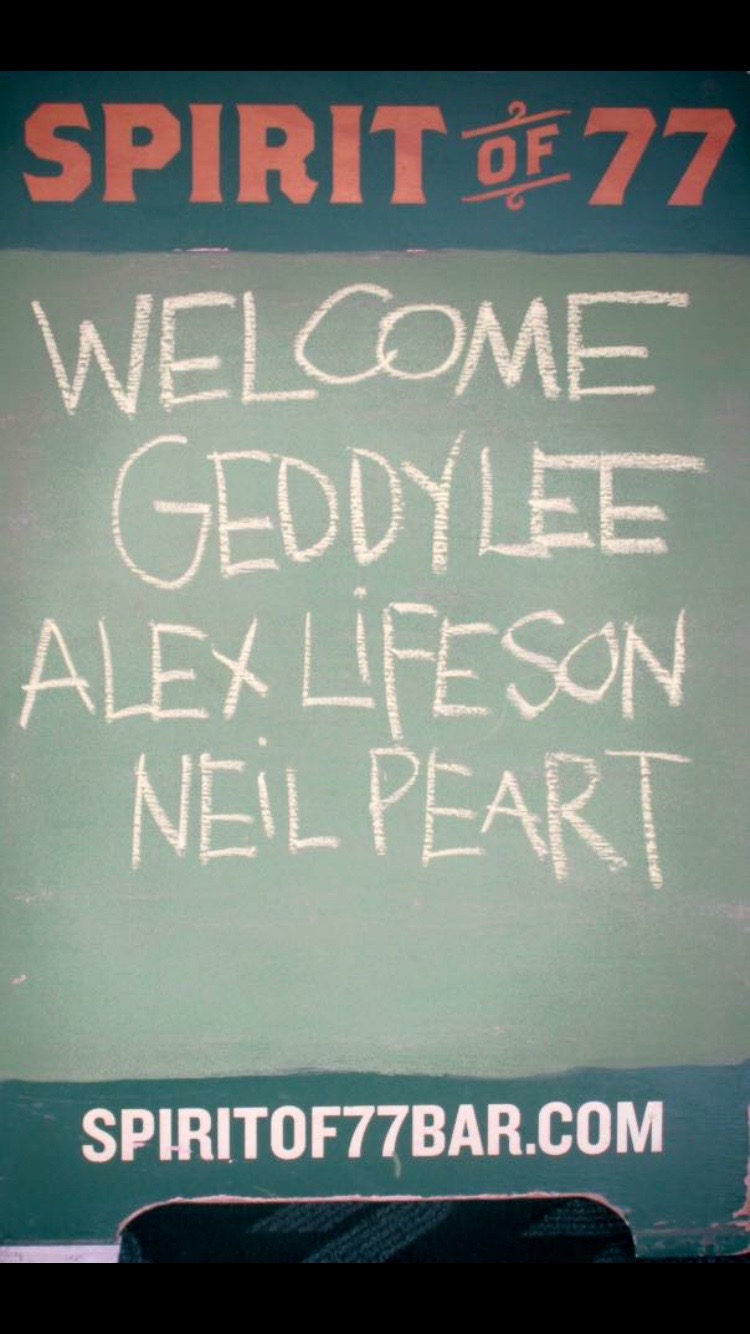 SPIRIT OF 77
WELCOME
GEDDY LEE
ALEX LiFESON
NEiL PEART
SPIRITOF77BAR.COM